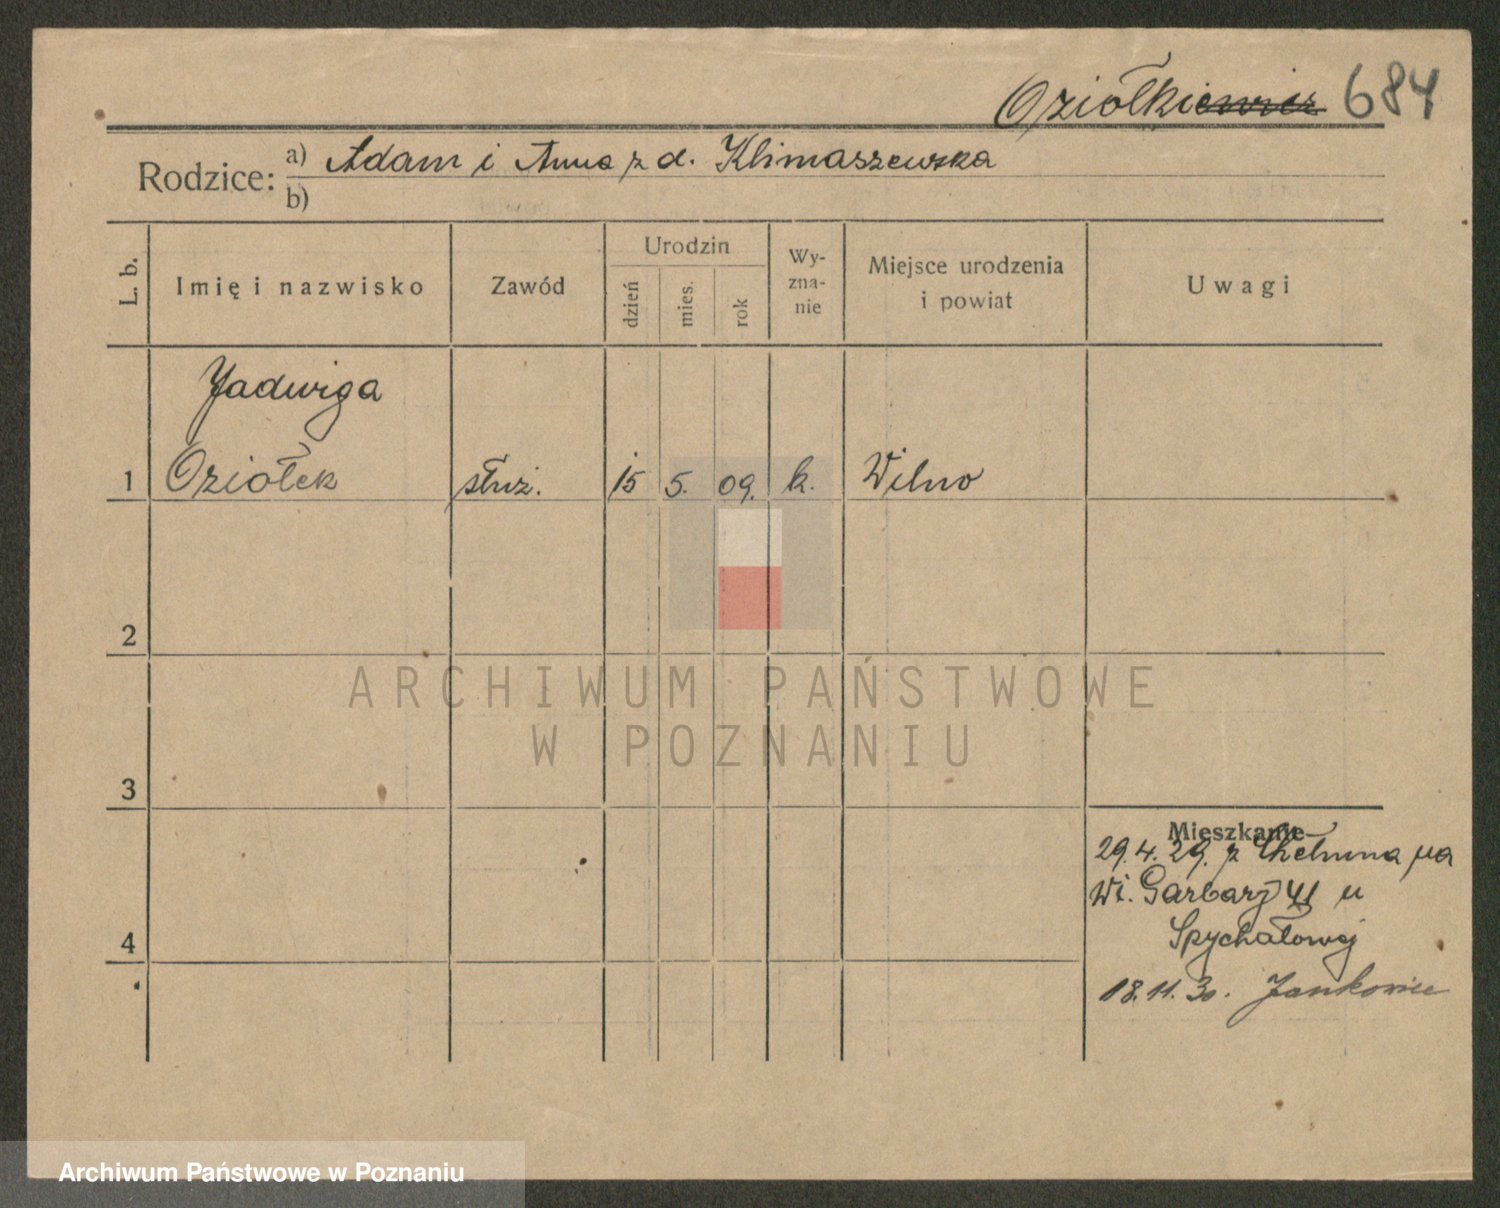 Oziołkiewicz 684
Rodzice: a) Adam i Anna z d. Klimaszewska
b)
L. b.
Imię i nazwisko
Zawód
Urodzin
dzień
mies.
rok
Wy-
zna-
nie
Miejsce urodzenia
i powiat
Uwagi
Jadwiga
1 Oziołek służ. 15 5. 09. k. Wilno
2
ARCHIWUM PAŃSTWOWE
W POZNANIU
3
Mieszkanie
29.4.29. z Chełmna na
Wł. Garbary 41 u
Spychałowej
4
18.11.30. Jankowice
Archiwum Państwowe w Poznaniu